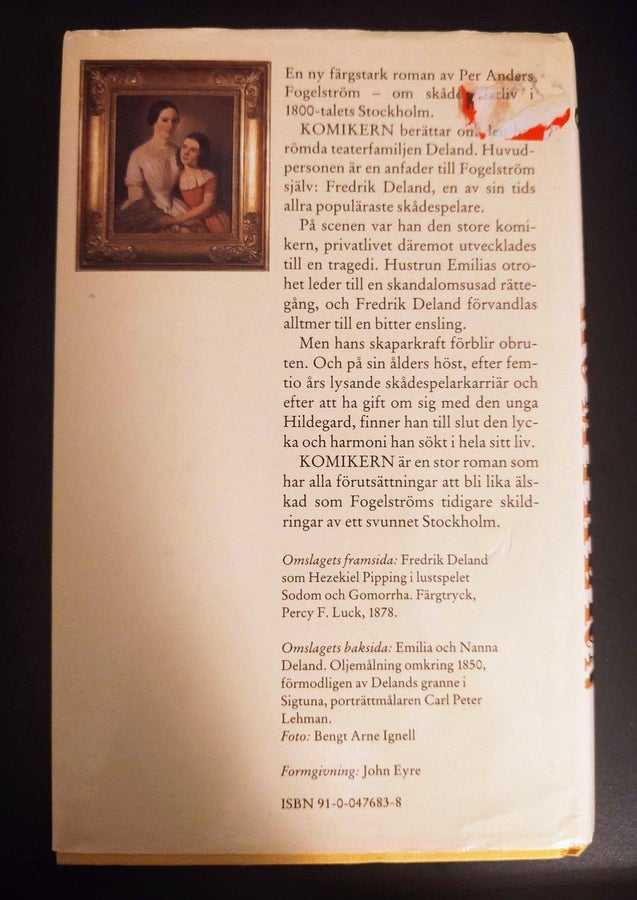 En ny färgstark roman av Per Anders
Fogelström – om i
1800-talets Stockholm.
KOMIKERN berättar om
römda teaterfamiljen Deland. Huvud-
personen är en anfader till Fogelström
själv: Fredrik Deland, en av sin tids
allra populäraste skådespelare.
På scenen var han den store komi-
kern, privatlivet däremot utvecklades
till en tragedi. Hustrun Emilias otro-
het leder till en skandalomsusad rätte-
gång, och Fredrik Deland förvandlas
alltmer till en bitter ensling.
Men hans skaparkraft förblir obru-
ten. Och på sin ålders höst, efter fem-
tio års lysande skådespelarkarriär och
efter att ha gift om sig med den unga
Hildegard, finner han till slut den lyc-
ka och harmoni han sökt i hela sitt liv.
KOMIKERN är en stor roman som
har alla förutsättningar att bli lika äls-
kad som Fogelströms tidigare skild-
ringar av ett svunnet Stockholm.
Omslagets framsida: Fredrik Deland
som Hezekiel Pipping i lustspelet
Sodom och Gomorrha. Färgtryck,
Percy F. Luck, 1878.
Omslagets baksida: Emilia och Nanna
Deland. Oljemålning omkring 1850,
förmodligen av Delands granne i
Sigtuna, porträttmålaren Carl Peter
Lehman.
Foto: Bengt Arne Ignell
Formgivning: John Eyre
ISBN 91-0-047683-8